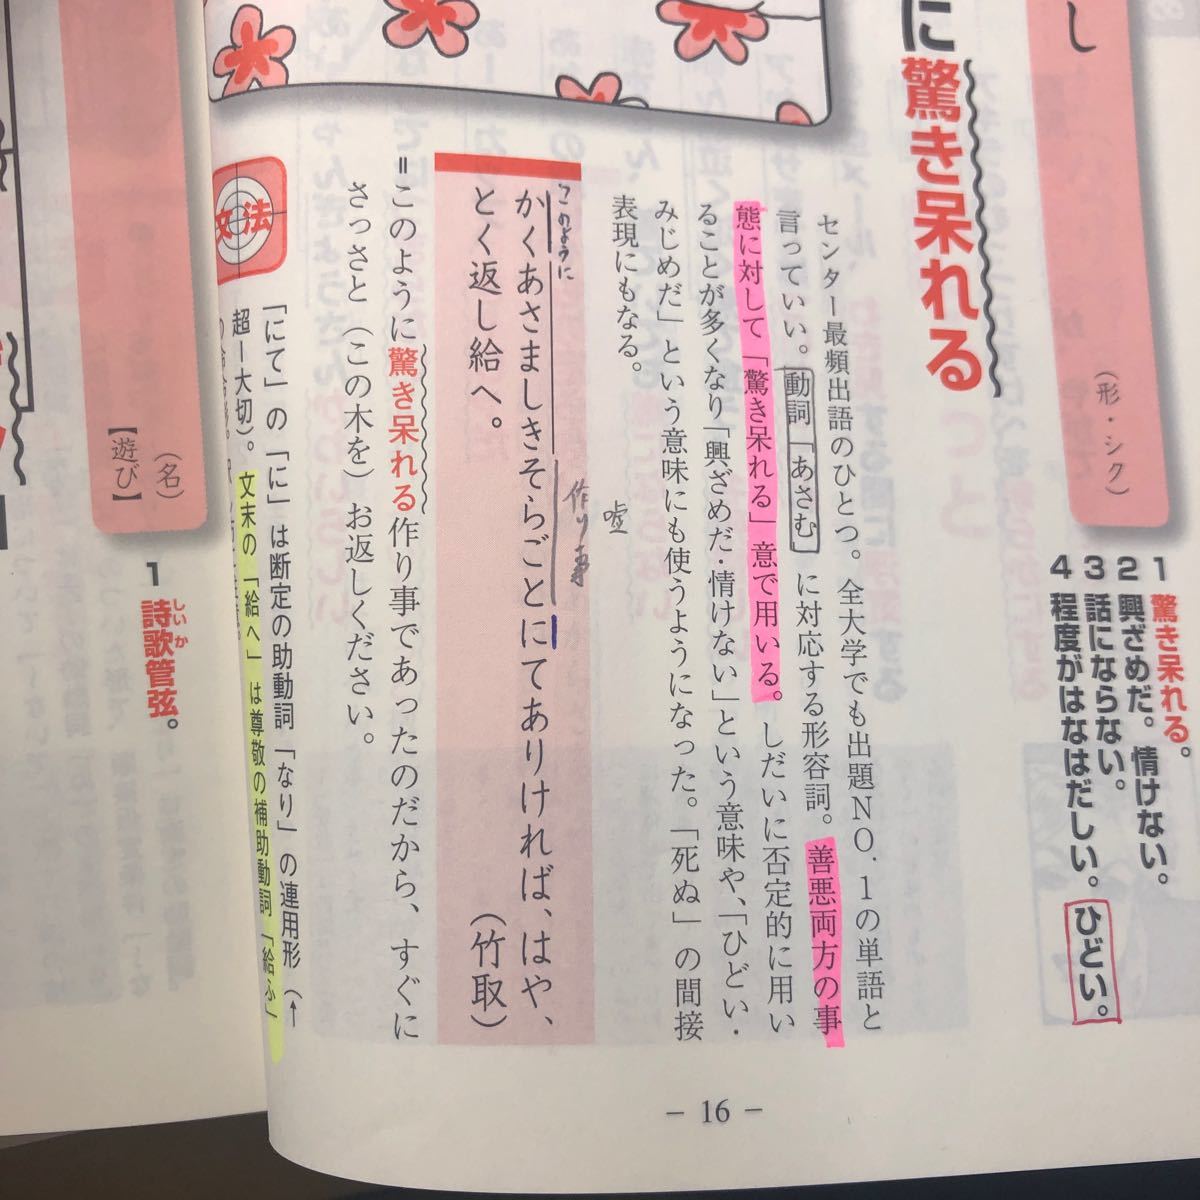 し
（形・シク）
1 驚き呆れる。
2 興ざめだ。情けない。
3 話にならない。
4 程度がはなはだしい。ひどい。
に驚き呆れる
センター最頻出語のひとつ。全大学でも出題NO.1の単語と
言っていい。動詞「あさむ」に対応する形容詞。善悪両方の事
態に対して「驚き呆れる」意で用いる。しだいに否定的に用い
ることが多くなり「興ざめだ・情けない」という意味や、「ひどい・
みじめだ」という意味にも使うようになった。「死ぬ」の間接
表現にもなる。
嘘
作り事
このように
かくあさましきそらごとにてありければ、はや、
とく返し給へ。
（竹取）
＝このように驚き呆れる作り事であったのだから、すぐに
さっさと（この木を）お返しください。
文法
「にて」の「に」は断定の助動詞「なり」の連用形（↑
超ー大切）。文末の「給へ」は尊敬の補助動詞「給ふ」
（名）
【遊び】
1 詩歌管弦。
しいか
- 16 -